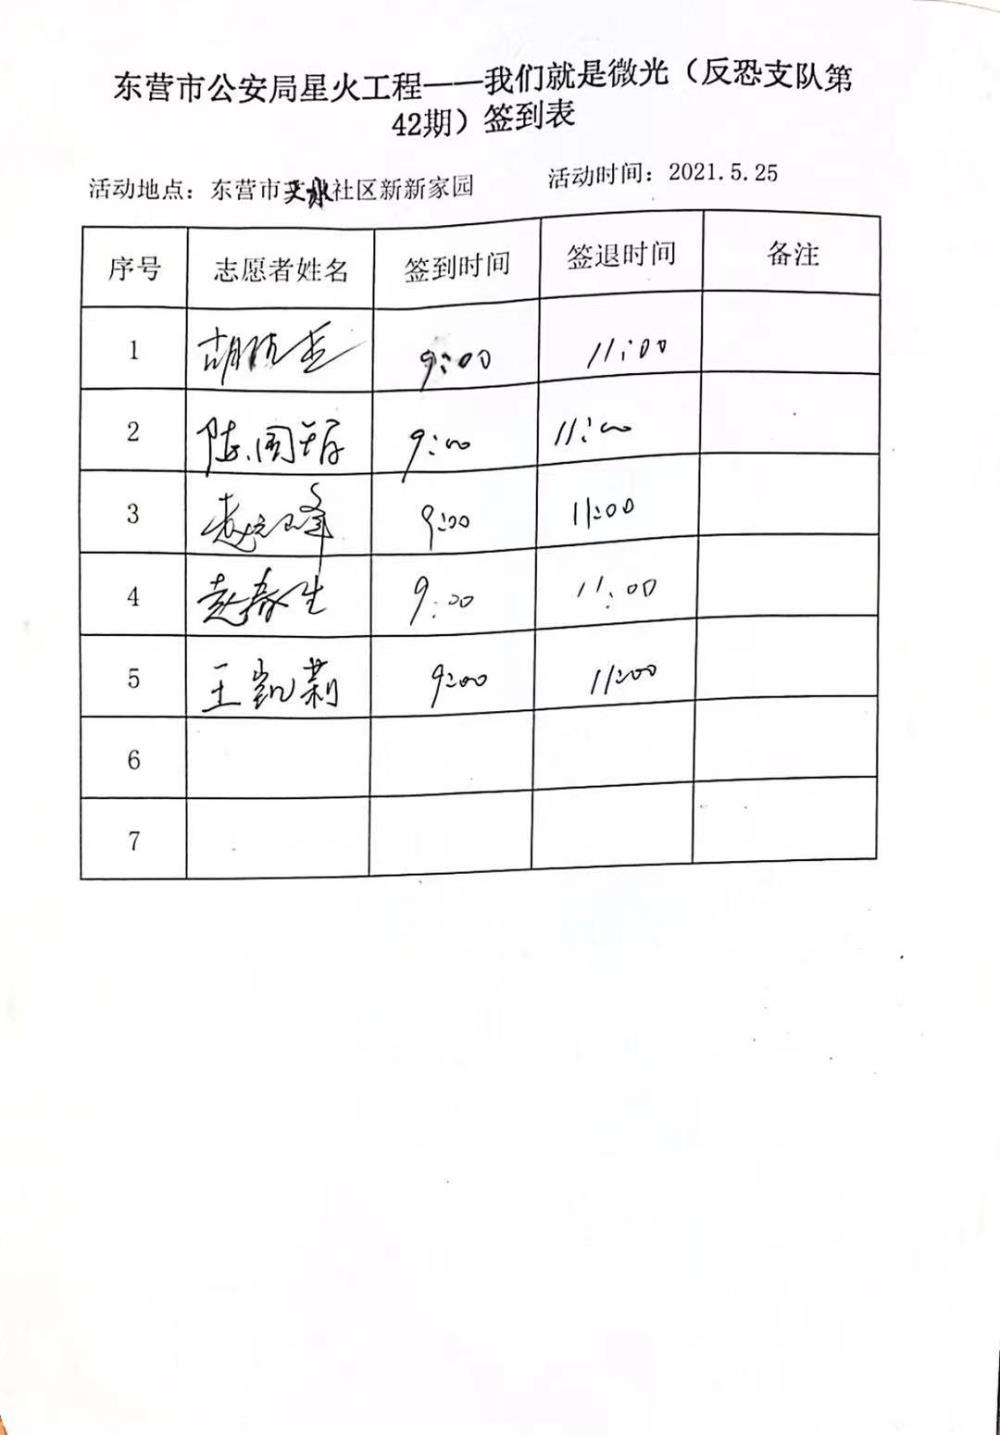 东营市公安局星火工程——我们就是微光（反恐支队第
42期）签到表
活动地点：东营市文水社区新新家园 活动时间：2021.5.25
序号 志愿者姓名 签到时间 签退时间 备注
1 胡 9:00 11:00
2 陈国 9:00 11:00
3 峰 9:00 11:00
4 赵春生 9:00 11:00
5 王凯莉 9:00 11:00
6
7